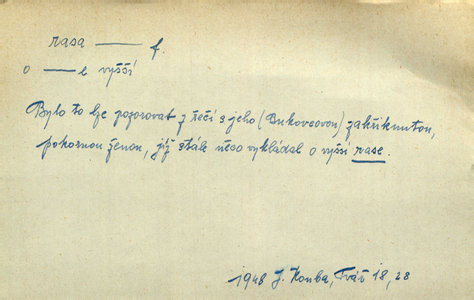 rasa — f.
o —e vyšší
Bylo to lze pozorovat z řečí s jeho (Bukovcovou) zakřiknutou,
pokornou ženou, jíž stále něco vykládal o vyšší rase.
1948 J. Kouba, Tvář 18, 28